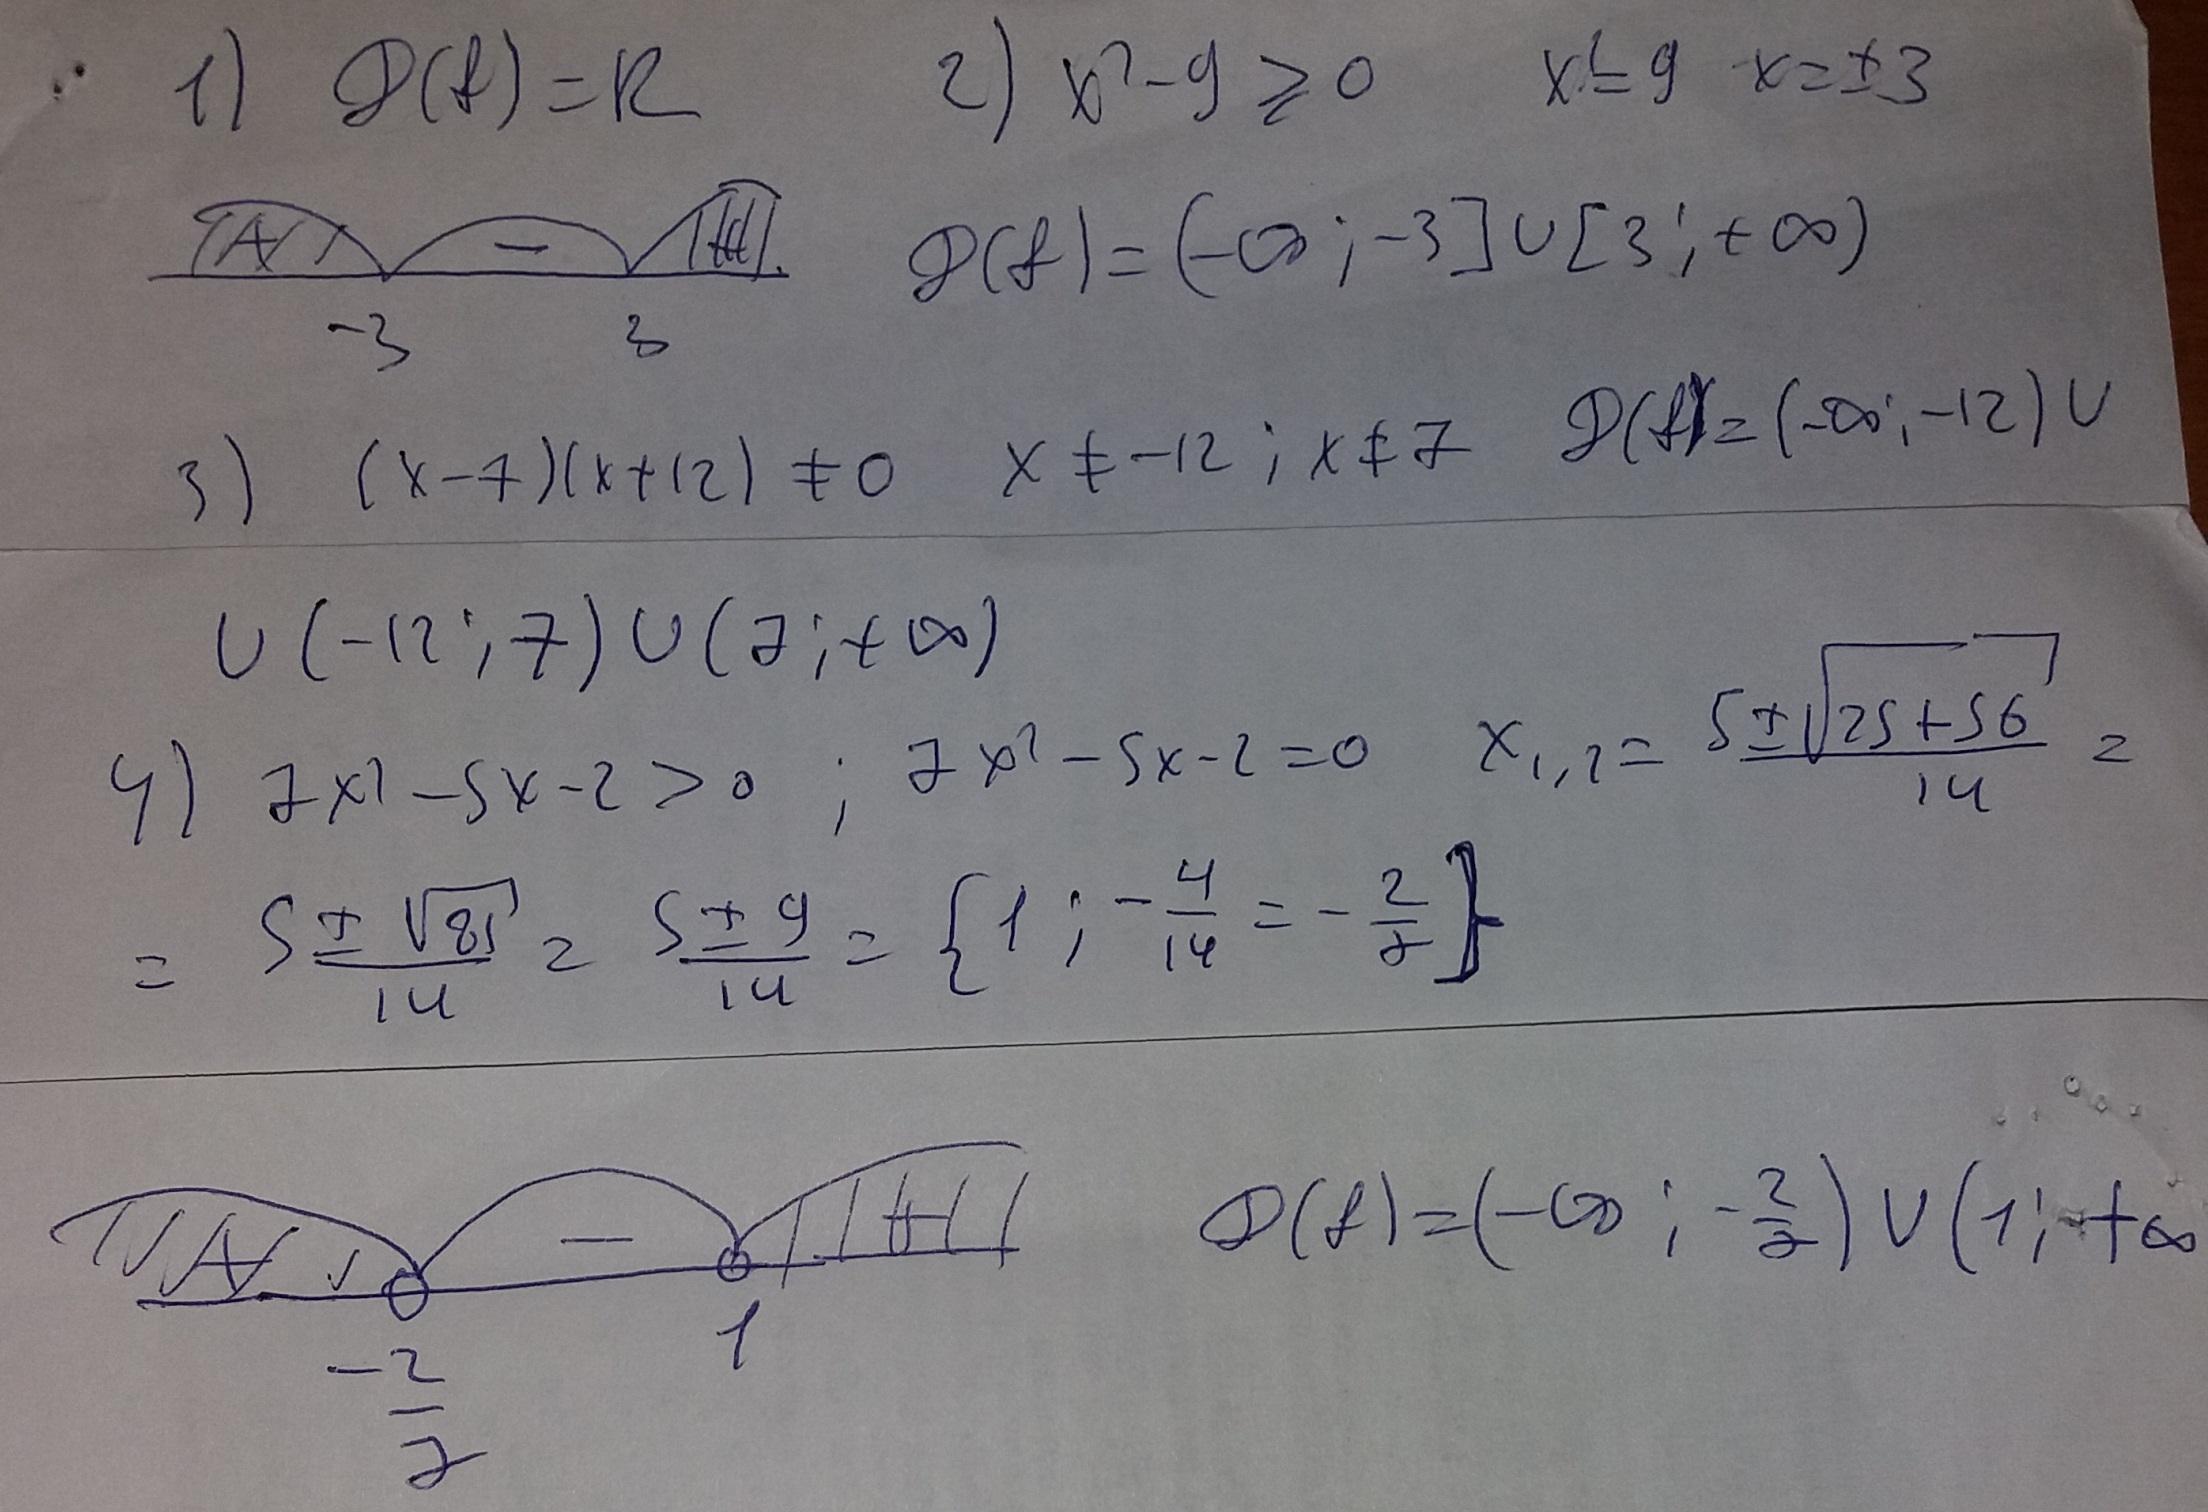 1) D(f)=R 2) x²-9⩾0 x²=9 x=±3
+ - +
-3 3
D(f)=(-∞;-3]∪[3;+∞)
3) (x-7)(x+12)≠0 x≠-12; x≠7 D(f)=(-∞;-12)∪
∪(-12;7)∪(7;+∞)
4) 7x²-5x-2>0; 7x²-5x-2=0 x₁,₂= (5±√(25+56))/14 =
= (5±√81)/14 = (5±9)/14 = {1; -4/14 = -2/7}
+ - +
-2/7 1
D(f)=(-∞;-2/7)∪(1;+∞